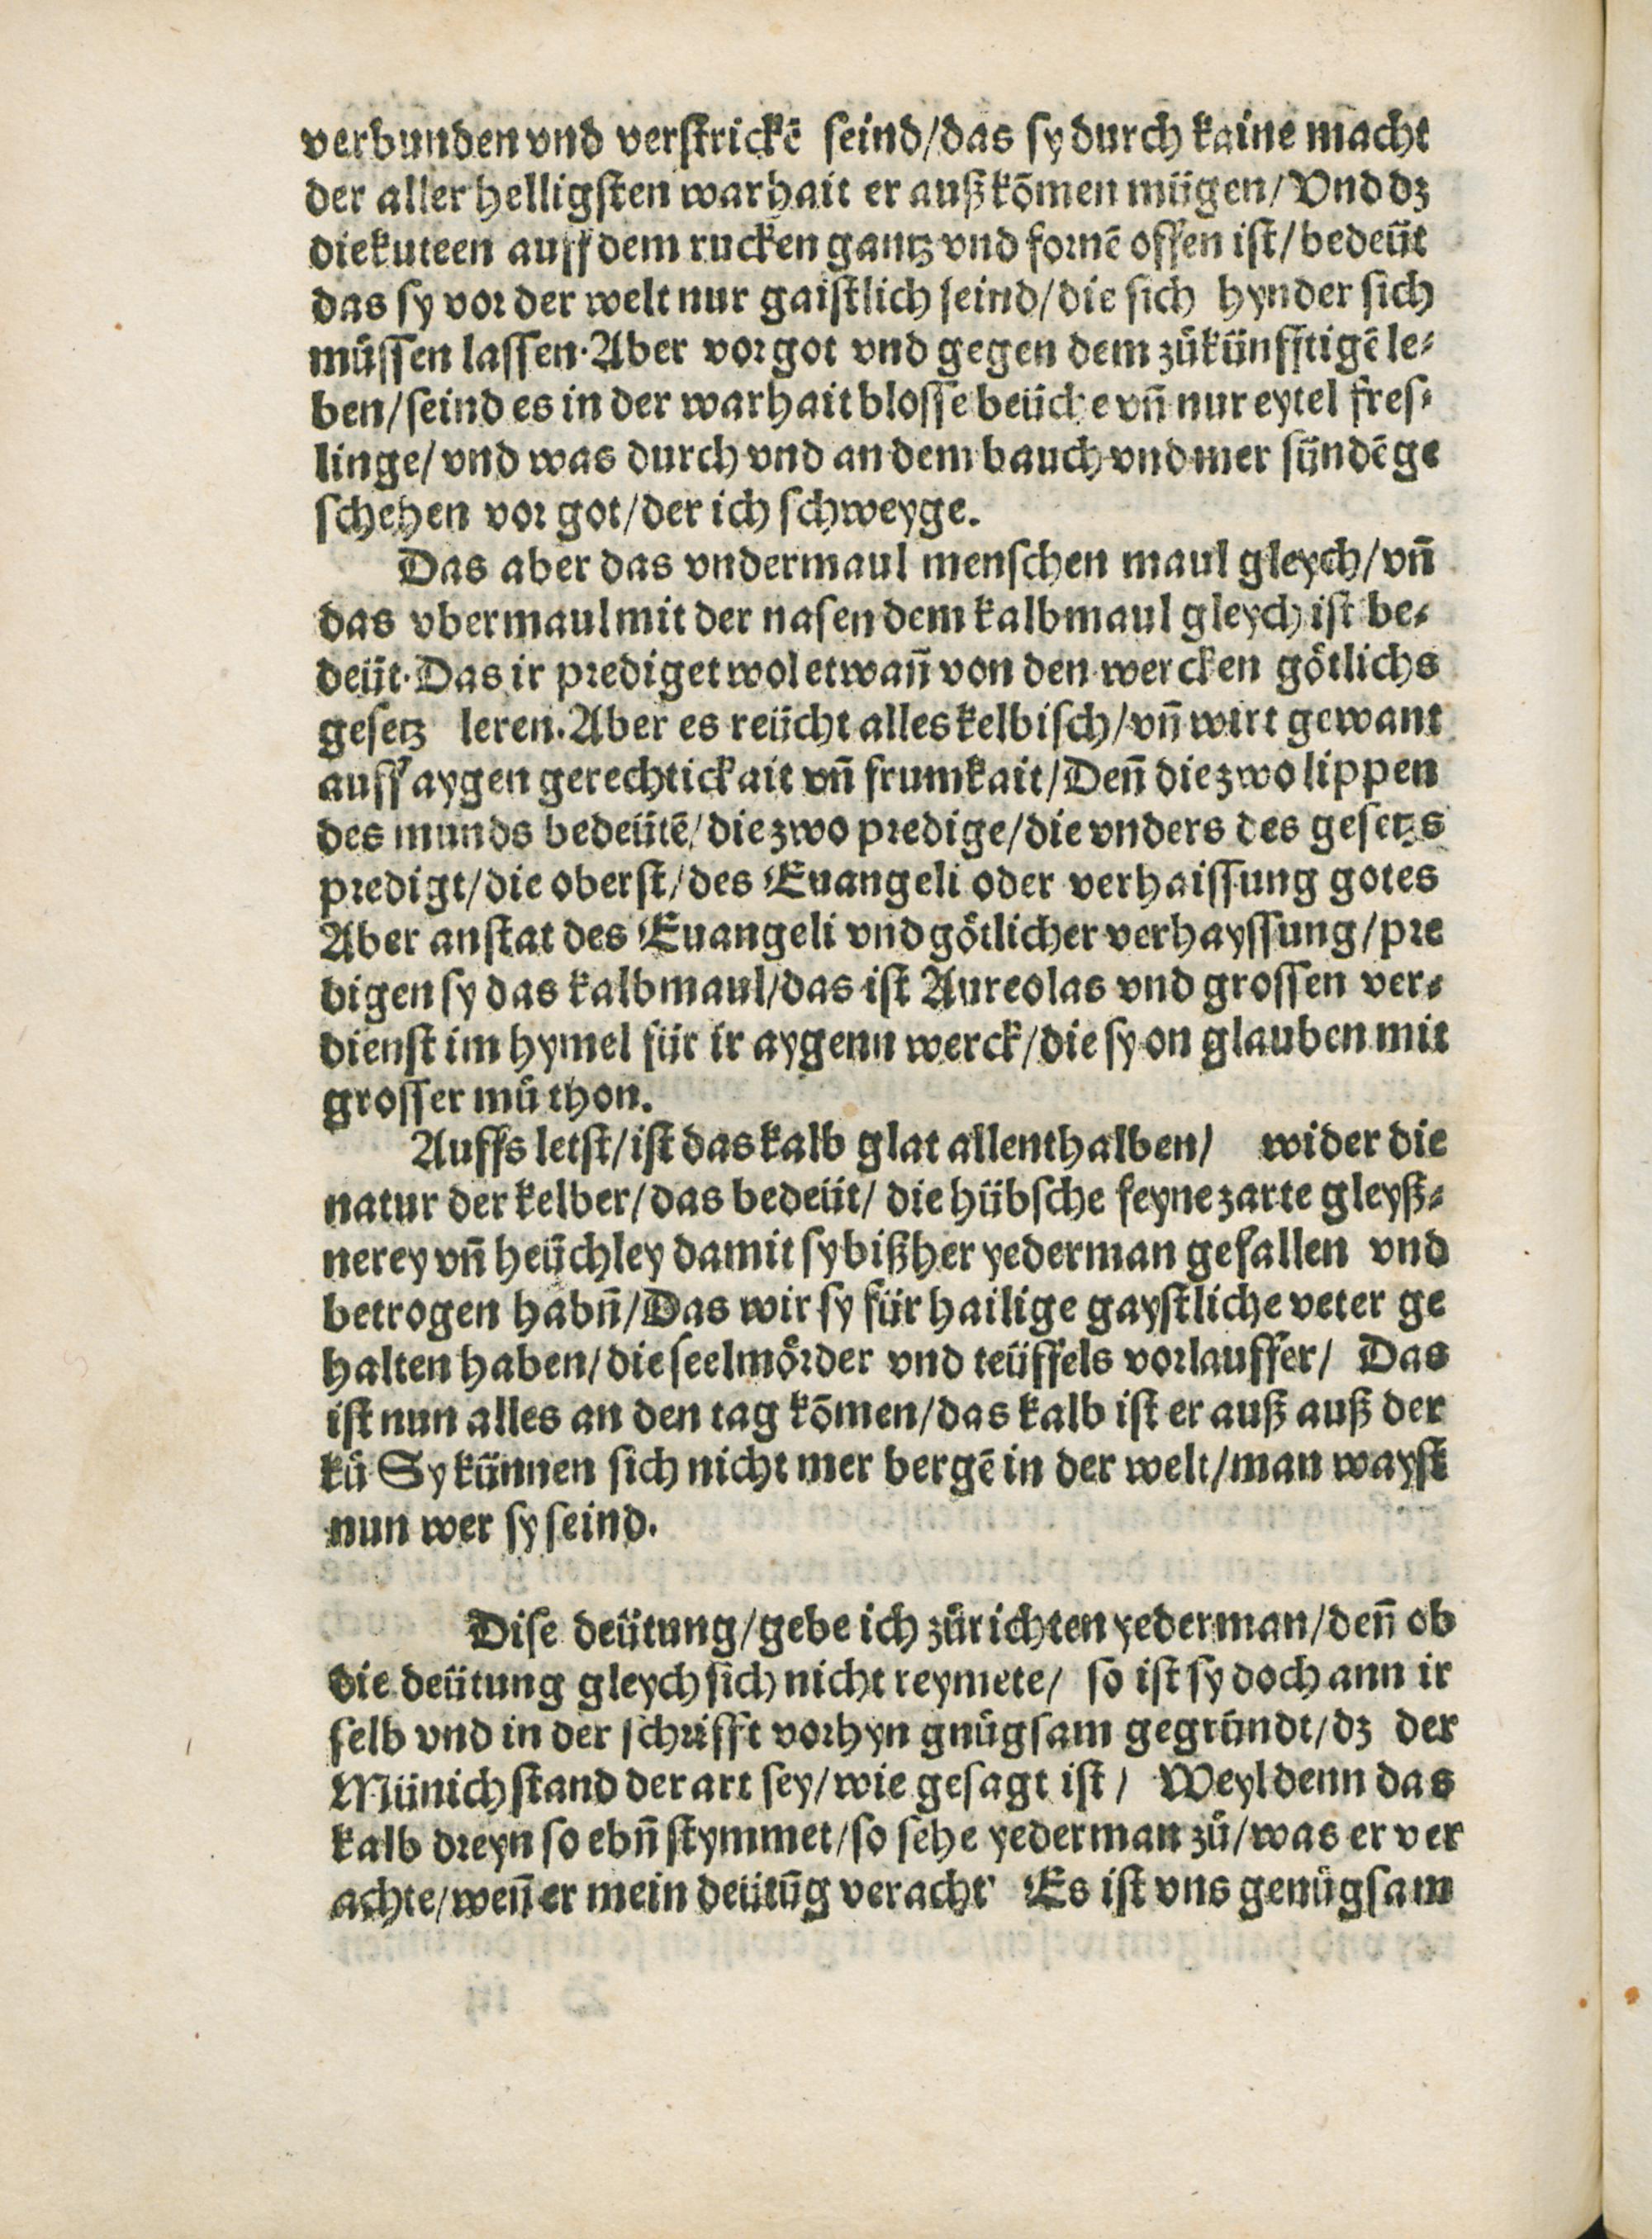 verbunden vnd verstrickē seind/das sy durch kaine macht
der aller helligsten warhait er auß kōmen mügen/Vnd dz
die kuteen auff dem rucken gantz vnd fornē offen ist/bedeüt
das sy vor der welt nur gaistlich seind/die sich hynder sich
müssen lassen·Aber vor got vnd gegen dem zůkünfftigē le⸗
ben/seind es in der warhait blosse beücke vñ nur eytel fres⸗
linge/vnd was durch vnd an dem bauch vnd mer sündē ge
schehen vor got/der ich schweyge.
Das aber das vndermaul menschen maul gleych/vñ
das vbermaul mit der nasen dem kalbmaul gleych ist be⸗
deüt·Das ir prediget wol etwañ von den wercken götlichs
gesetz leren.Aber es reücht alles kelbisch/vñ wirt gewant
auff aygen gerechtickait vñ frumkait/Deñ die zwo lippen
des munds bedeütē/die zwo predige/die vnders des gesetzs
predigt/die oberst/des Euangeli oder verhaissung gotes
Aber anstat des Euangeli vnd götlicher verhayssung/pre
digen sy das kalbmaul/das ist Aureolas vnd grossen ver⸗
dienst im hymel für ir aygenn werck/die sy on glauben mit
grosser mů thon.
Auffs letst/ist das kalb glat allenthalben/ wider die
natur der kelber/das bedeüt/ die hübsche feyne zarte gleyß⸗
nerey vñ heüchley damit sy bißher yederman gefallen vnd
betrogen habñ/Das wir sy für hailige gaystliche veter ge
halten haben/die seelmörder vnd teüffels vorlauffer/ Das
ist nun alles an den tag kōmen/das kalb ist er auß auß der
ků Sy künnen sich nicht mer bergē in der welt/man wayst
nun wer sy seind.
Dise deütung/gebe ich zůrichten yederman/deñ ob
die deütung gleych sich nicht reymete/ so ist sy doch ann ir
selb vnd in der schrifft vorhyn gnůgsam gegründt/dz der
Münich stand der art sey/wie gesagt ist/ Weyl denn das
kalb dreyn so ebñ stymmet/so sehe yederman zů/was er ver
achte/weñ er mein deütūg veracht· Es ist vns genůgsam